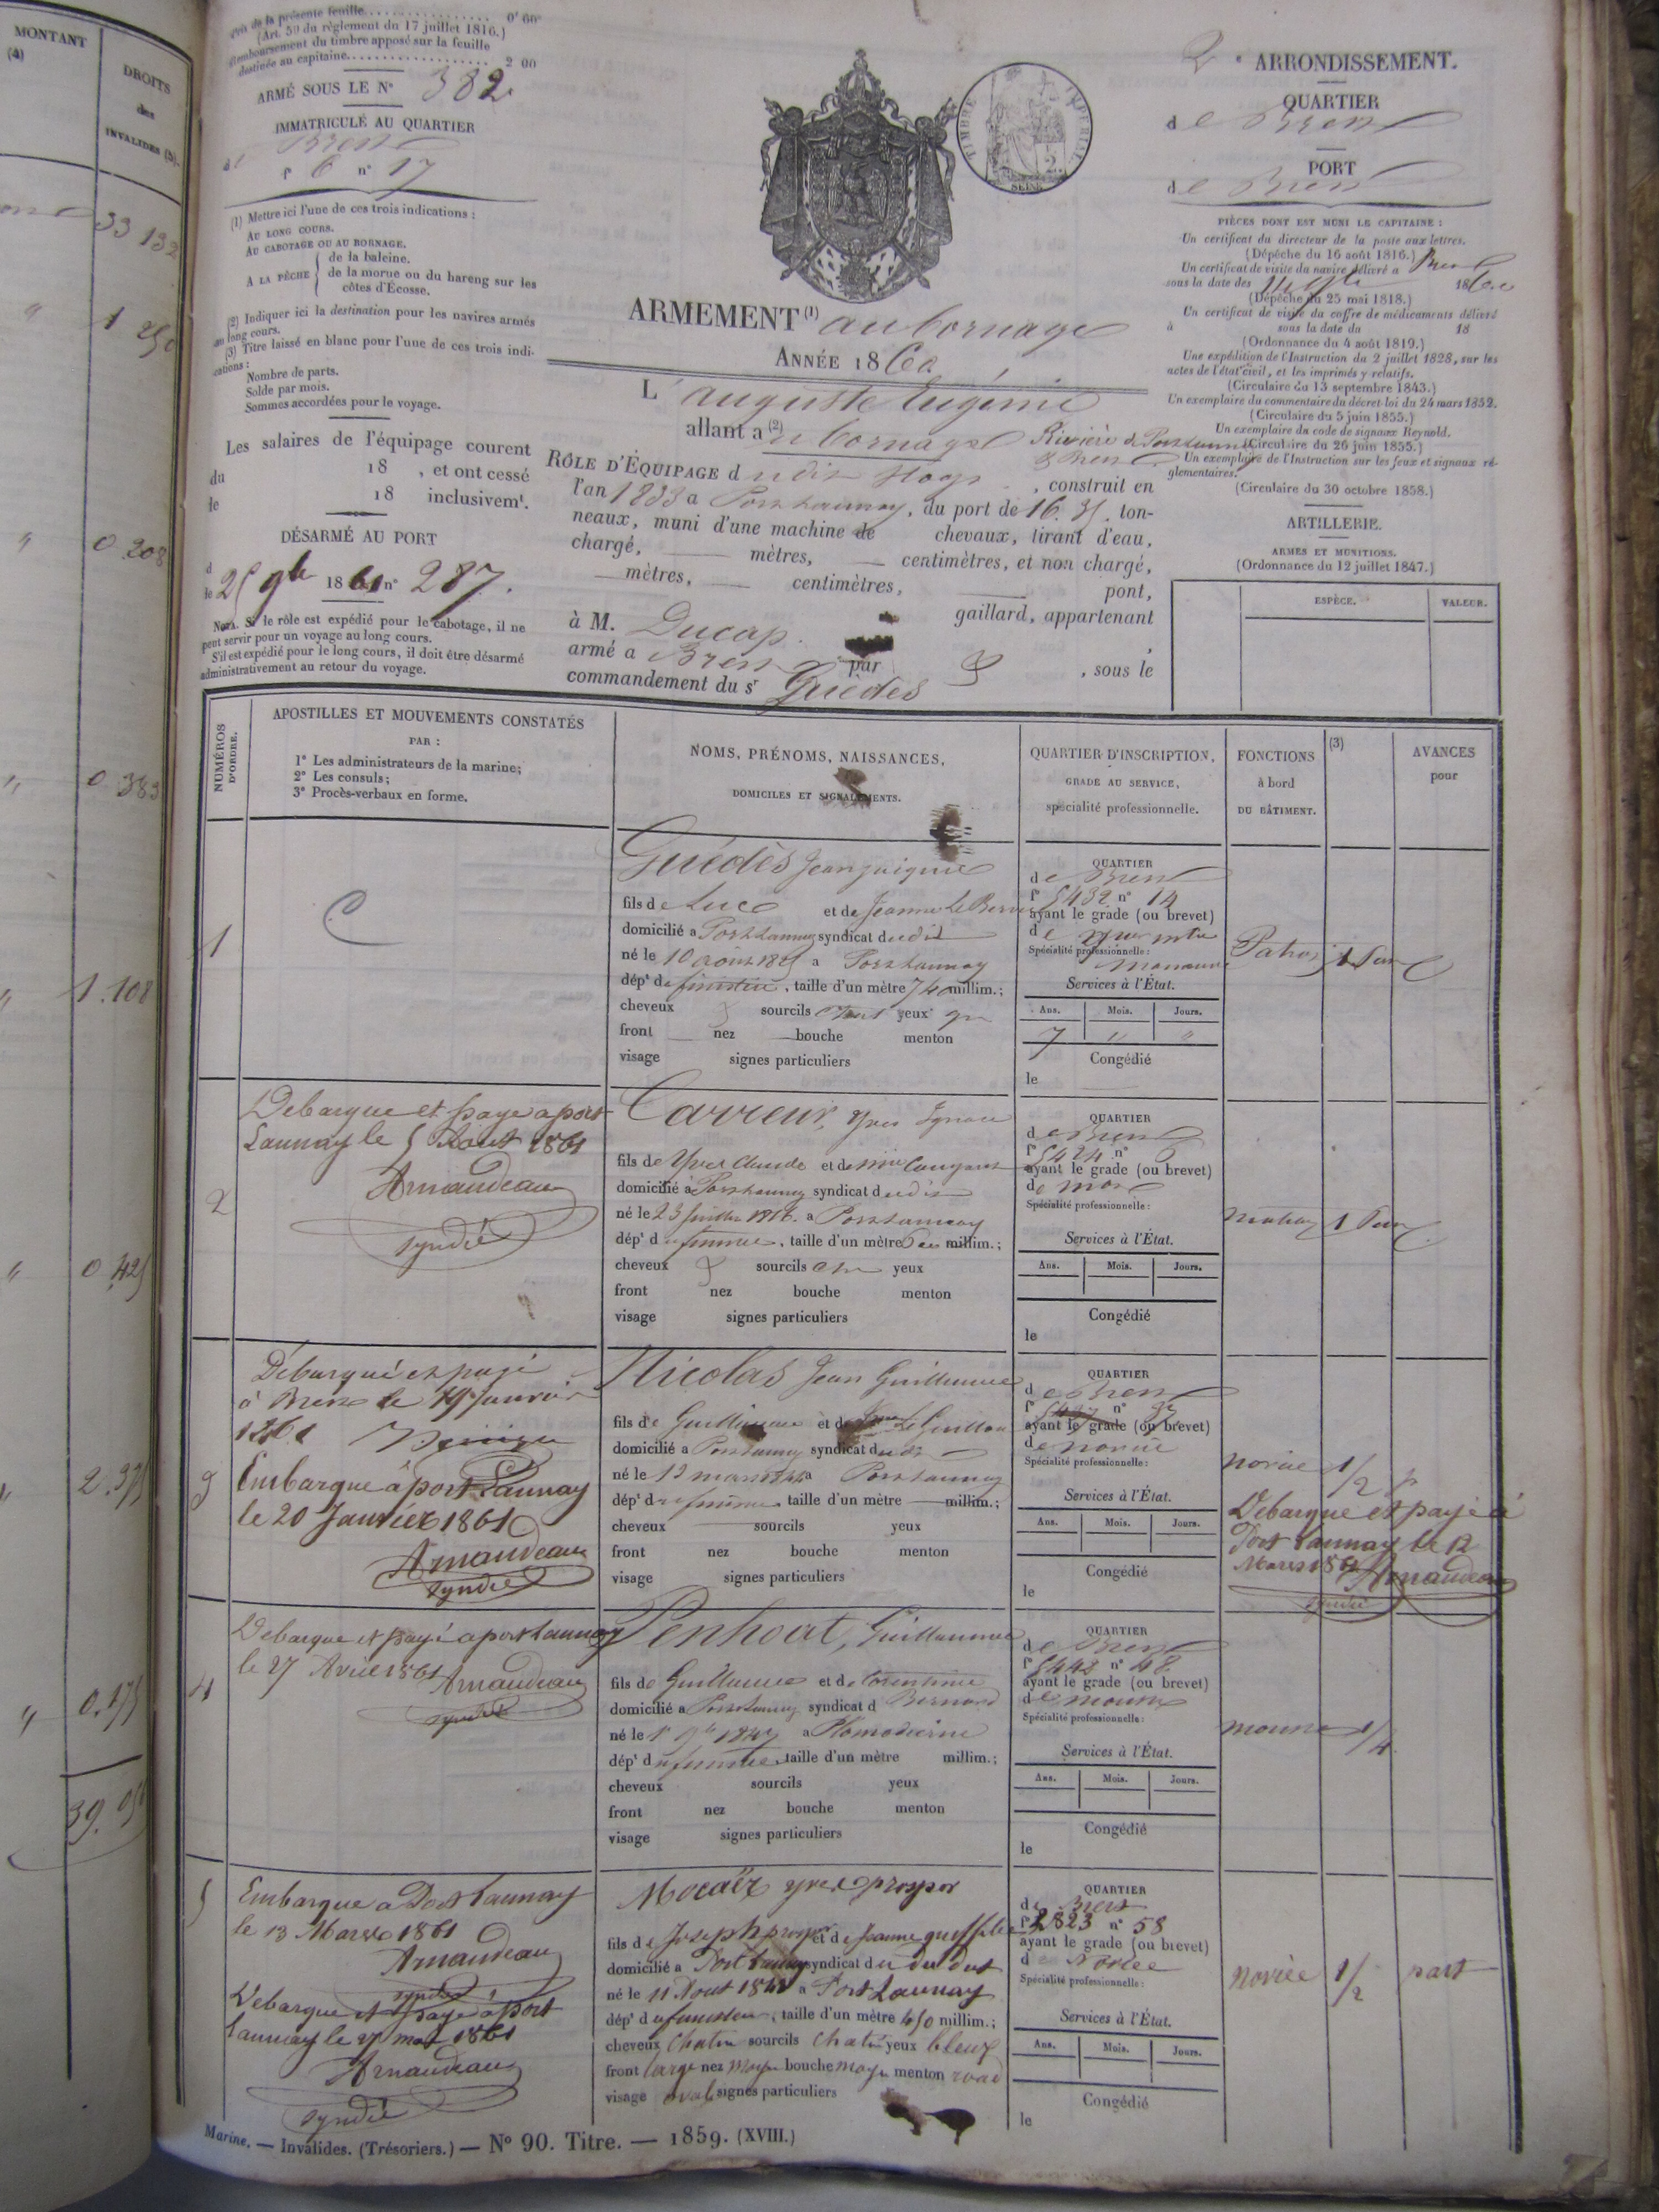 MONTANT
(4)
DROITS
des
INVALIDES (5).
33 132
" 1 250
" 0 208
" 0 383
" 1.108
" 0,425
" 2.375
" 0.175
39.05
prix de la présente feuille 0f 60c
(Art. 50 du règlement du 17 juillet 1816.)
Remboursement du timbre apposé sur la feuille
destinée au capitaine 2 00
ARMÉ SOUS LE N° 382
IMMATRICULÉ AU QUARTIER
de Brest
f° 6 n° 17
(1) Mettre ici l'une de ces trois indications :
AU LONG COURS.
AU CABOTAGE OU AU BORNAGE.
A LA PÊCHE { de la baleine.
de la morue ou du hareng sur les
côtes d'Écosse.
(2) Indiquer ici la destination pour les navires armés
au long cours.
(3) Titre laissé en blanc pour l'une de ces trois indi-
cations :
Nombre de parts.
Solde par mois.
Sommes accordées pour le voyage.
Les salaires de l'équipage courent
du 18 , et ont cessé
le 18 inclusivemt.
DÉSARMÉ AU PORT
d
le 25 9bre 1861 n° 287.
NOTA. Si le rôle est expédié pour le cabotage, il ne
peut servir pour un voyage au long cours.
S'il est expédié pour le long cours, il doit être désarmé
administrativement au retour du voyage.
TIMBRE IMPÉRIAL
2
SEINE
ARMEMENT (1) au bornage
ANNÉE 1860
L' auguste Eugénie
allant a (2) u bornage Rivière de Portlaunay
& Brest
RÔLE D'ÉQUIPAGE d u dit Sloop , construit en
l'an 1833 a Portlaunay, du port de 16.35. ton-
neaux, muni d'une machine de chevaux, tirant d'eau,
chargé, — mètres, — centimètres, et non chargé,
— mètres, — centimètres, — pont,
gaillard, appartenant
à M. Ducap.
armé a Brest par , sous le
commandement du sr Guédes
2e ARRONDISSEMENT.
QUARTIER
de Brest
PORT
de Brest
PIÈCES DONT EST MUNI LE CAPITAINE :
Un certificat du directeur de la poste aux lettres.
(Dépêche du 16 août 1816.)
Un certificat de visite du navire délivré a Brest
sous la date des 1860
(Dépêche du 25 mai 1818.)
Un certificat de visite du coffre de médicaments délivré
à sous la date du 18
(Ordonnance du 4 août 1819.)
Une expédition de l'Instruction du 2 juillet 1828, sur les
actes de l'état civil, et les imprimés y relatifs.
(Circulaire du 13 septembre 1843.)
Un exemplaire du commentaire du décret-loi du 24 mars 1852.
(Circulaire du 5 juin 1855.)
Un exemplaire du code de signaux Reynold.
(Circulaire du 26 juin 1855.)
Un exemplaire de l'Instruction sur les feux et signaux ré-
glementaires.
(Circulaire du 30 octobre 1858.)
ARTILLERIE.
ARMES ET MUNITIONS.
(Ordonnance du 12 juillet 1847.)
ESPÈCE. VALEUR.
NUMÉROS D'ORDRE.
APOSTILLES ET MOUVEMENTS CONSTATÉS
PAR :
1° Les administrateurs de la marine;
2° Les consuls;
3° Procès-verbaux en forme.
NOMS, PRÉNOMS, NAISSANCES,
DOMICILES ET SIGNALEMENTS.
QUARTIER D'INSCRIPTION,
GRADE AU SERVICE,
spécialité professionnelle.
FONCTIONS
à bord
DU BÂTIMENT.
(3)
AVANCES
pour
1
Guédès Jean
fils de Luc et de Jeanne Le
domicilié a Portlaunay syndicat dudit
né le 10 août a Portlaunay
dépt de finistère, taille d'un mètre 740 millim.;
cheveux sourcils yeux
front nez bouche menton
visage signes particuliers
QUARTIER
de Brest
f° 5432 n° 14
ayant le grade (ou brevet)
de
Spécialité professionnelle :
Services à l'État.
Ans. Mois. Jours.
7 " "
Congédié
le
Patron 1 Part
2
Debarque et payé a port
Launay le 5 Aout 1861
Arnaudeau
syndic
Carreur, Yves Ignace
fils de Yves Claude et de
domicilié à Portlaunay syndicat dudit
né le 23 Juillet a Portlaunay
dépt du finistère, taille d'un mètre millim.;
cheveux sourcils yeux
front nez bouche menton
visage signes particuliers
QUARTIER
de Brest
f° 5424 n°
ayant le grade (ou brevet)
de
Spécialité professionnelle :
Services à l'État.
Ans. Mois. Jours.
Congédié
le
matelot 1 Part
3
Débarqué et payé
à Brest le 19 Janvier
1861
Embarque à port Launay
le 20 Janvier 1861
Arnaudeau
syndic
Nicolas Jean Guillaume
fils de Guillaume et de Le Guillou
domicilié a Portlaunay syndicat dudit
né le a Portlaunay
dépt du finistère taille d'un mètre — millim.;
cheveux sourcils yeux
front nez bouche menton
visage signes particuliers
QUARTIER
de Brest
f° n° 37
ayant le grade (ou brevet)
de novice
Spécialité professionnelle :
Services à l'État.
Ans. Mois. Jours.
Congédié
le
novice 1/2 p
Debarque et payé à
Port Launay le 12
Mars 1861 Arnaudeau
syndic
4
Debarque et payé a port Launay
le 27 Avril 1861 Arnaudeau
syndic
Penhoat, Guillaume
fils de Guillaume et de Corentine
Bernard
domicilié a Portlaunay syndicat d
né le 1er a Plomodiern
dépt du finistère taille d'un mètre millim.;
cheveux sourcils yeux
front nez bouche menton
visage signes particuliers
QUARTIER
de Brest
f° 5442 n° 48
ayant le grade (ou brevet)
de mousse
Spécialité professionnelle :
Services à l'État.
Ans. Mois. Jours.
Congédié
le
mousse 1/4
5
Embarque a Port Launay
le 13 Mars 1861
Arnaudeau
syndic
Debarque et payé à port
Launay le 27 mai 1861
Arnaudeau
syndic
Mocaër yves prosper
fils de Joseph prosper et de Jeanne
domicilié a Port launay syndicat du du dit
né le 11 Aout a Port Launay
dépt du finistère, taille d'un mètre 450 millim.;
cheveux Chatin sourcils Chatin yeux bleux
front large nez Moyen bouche moyen menton rond
visage oval signes particuliers
QUARTIER
de Brest
f° 2823 n° 58
ayant le grade (ou brevet)
d Novice
Spécialité professionnelle :
Services à l'État.
Ans. Mois. Jours.
Congédié
le
Novice 1/2 part
Marine. — Invalides. (Trésoriers.) — N° 90. Titre. — 1859. (XVIII.)